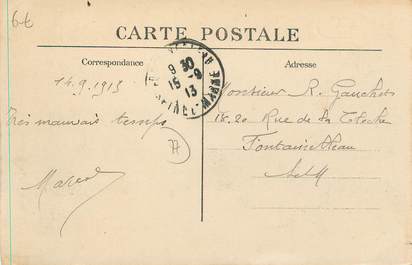 6€
CARTE POSTALE
Correspondance
Adresse
14.9.1913
Très mauvais temps
Marcel
9 30
15 - 9
13
MARNE
Monsieur R. Gauchot
18.20 Rue de la Cloche
Fontainebleau
S et M